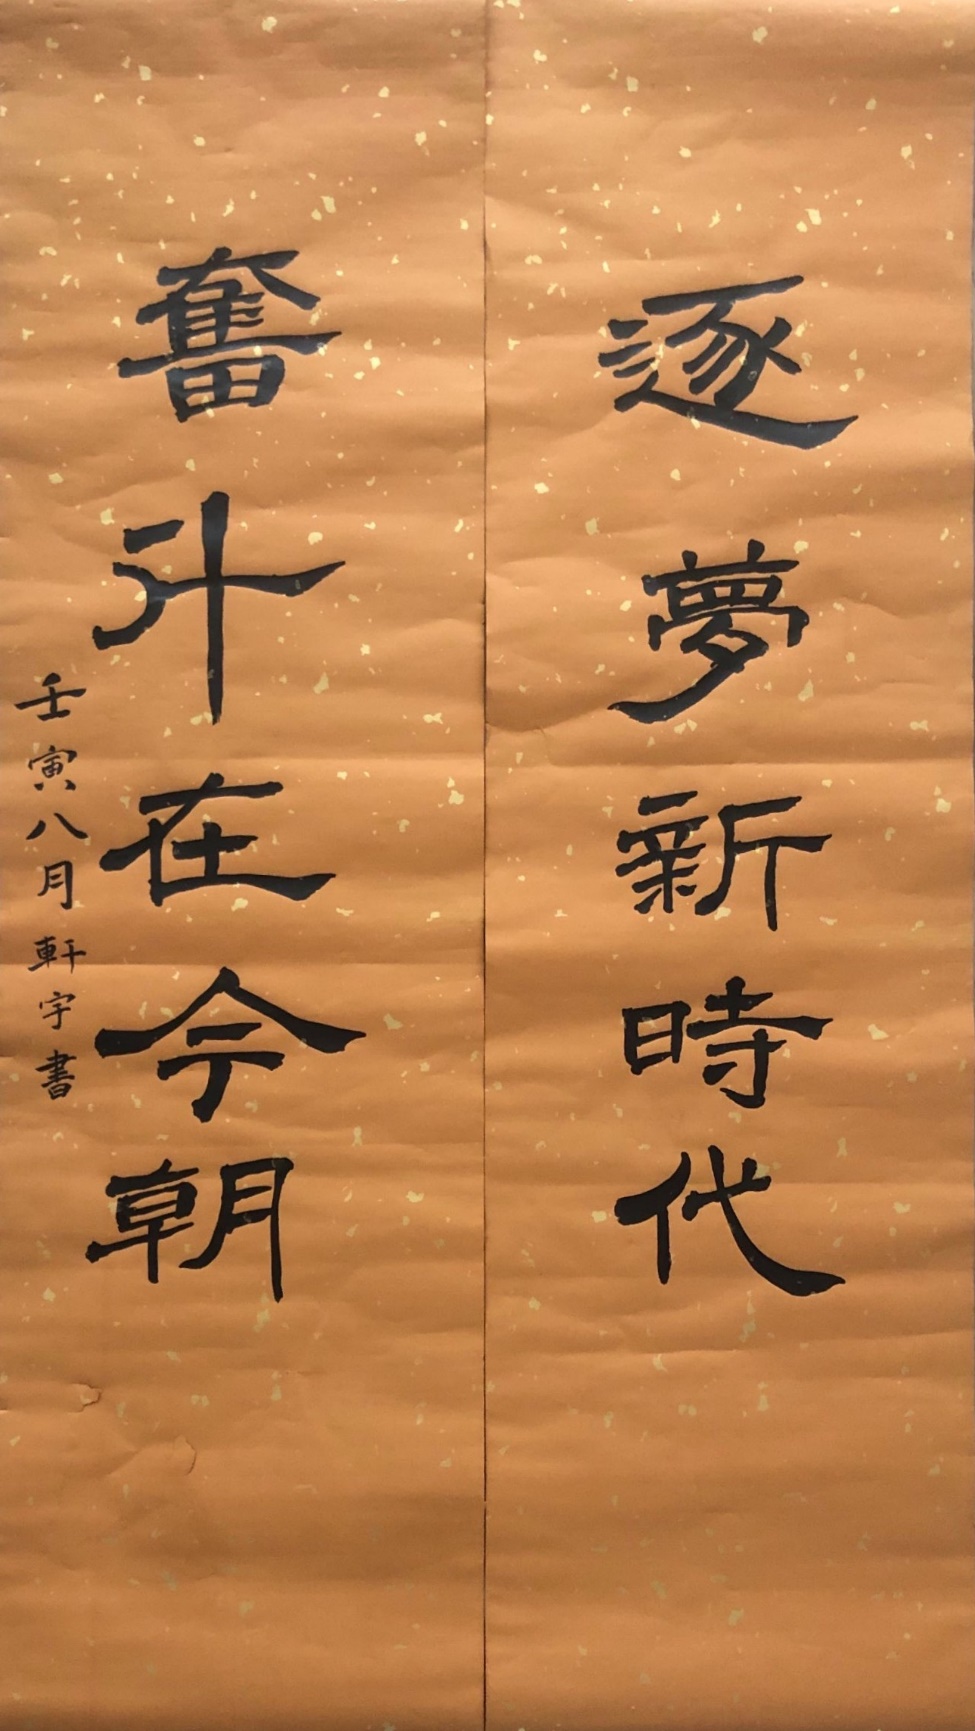 逐夢新時代
奮斗在今朝
壬寅八月軒宇書